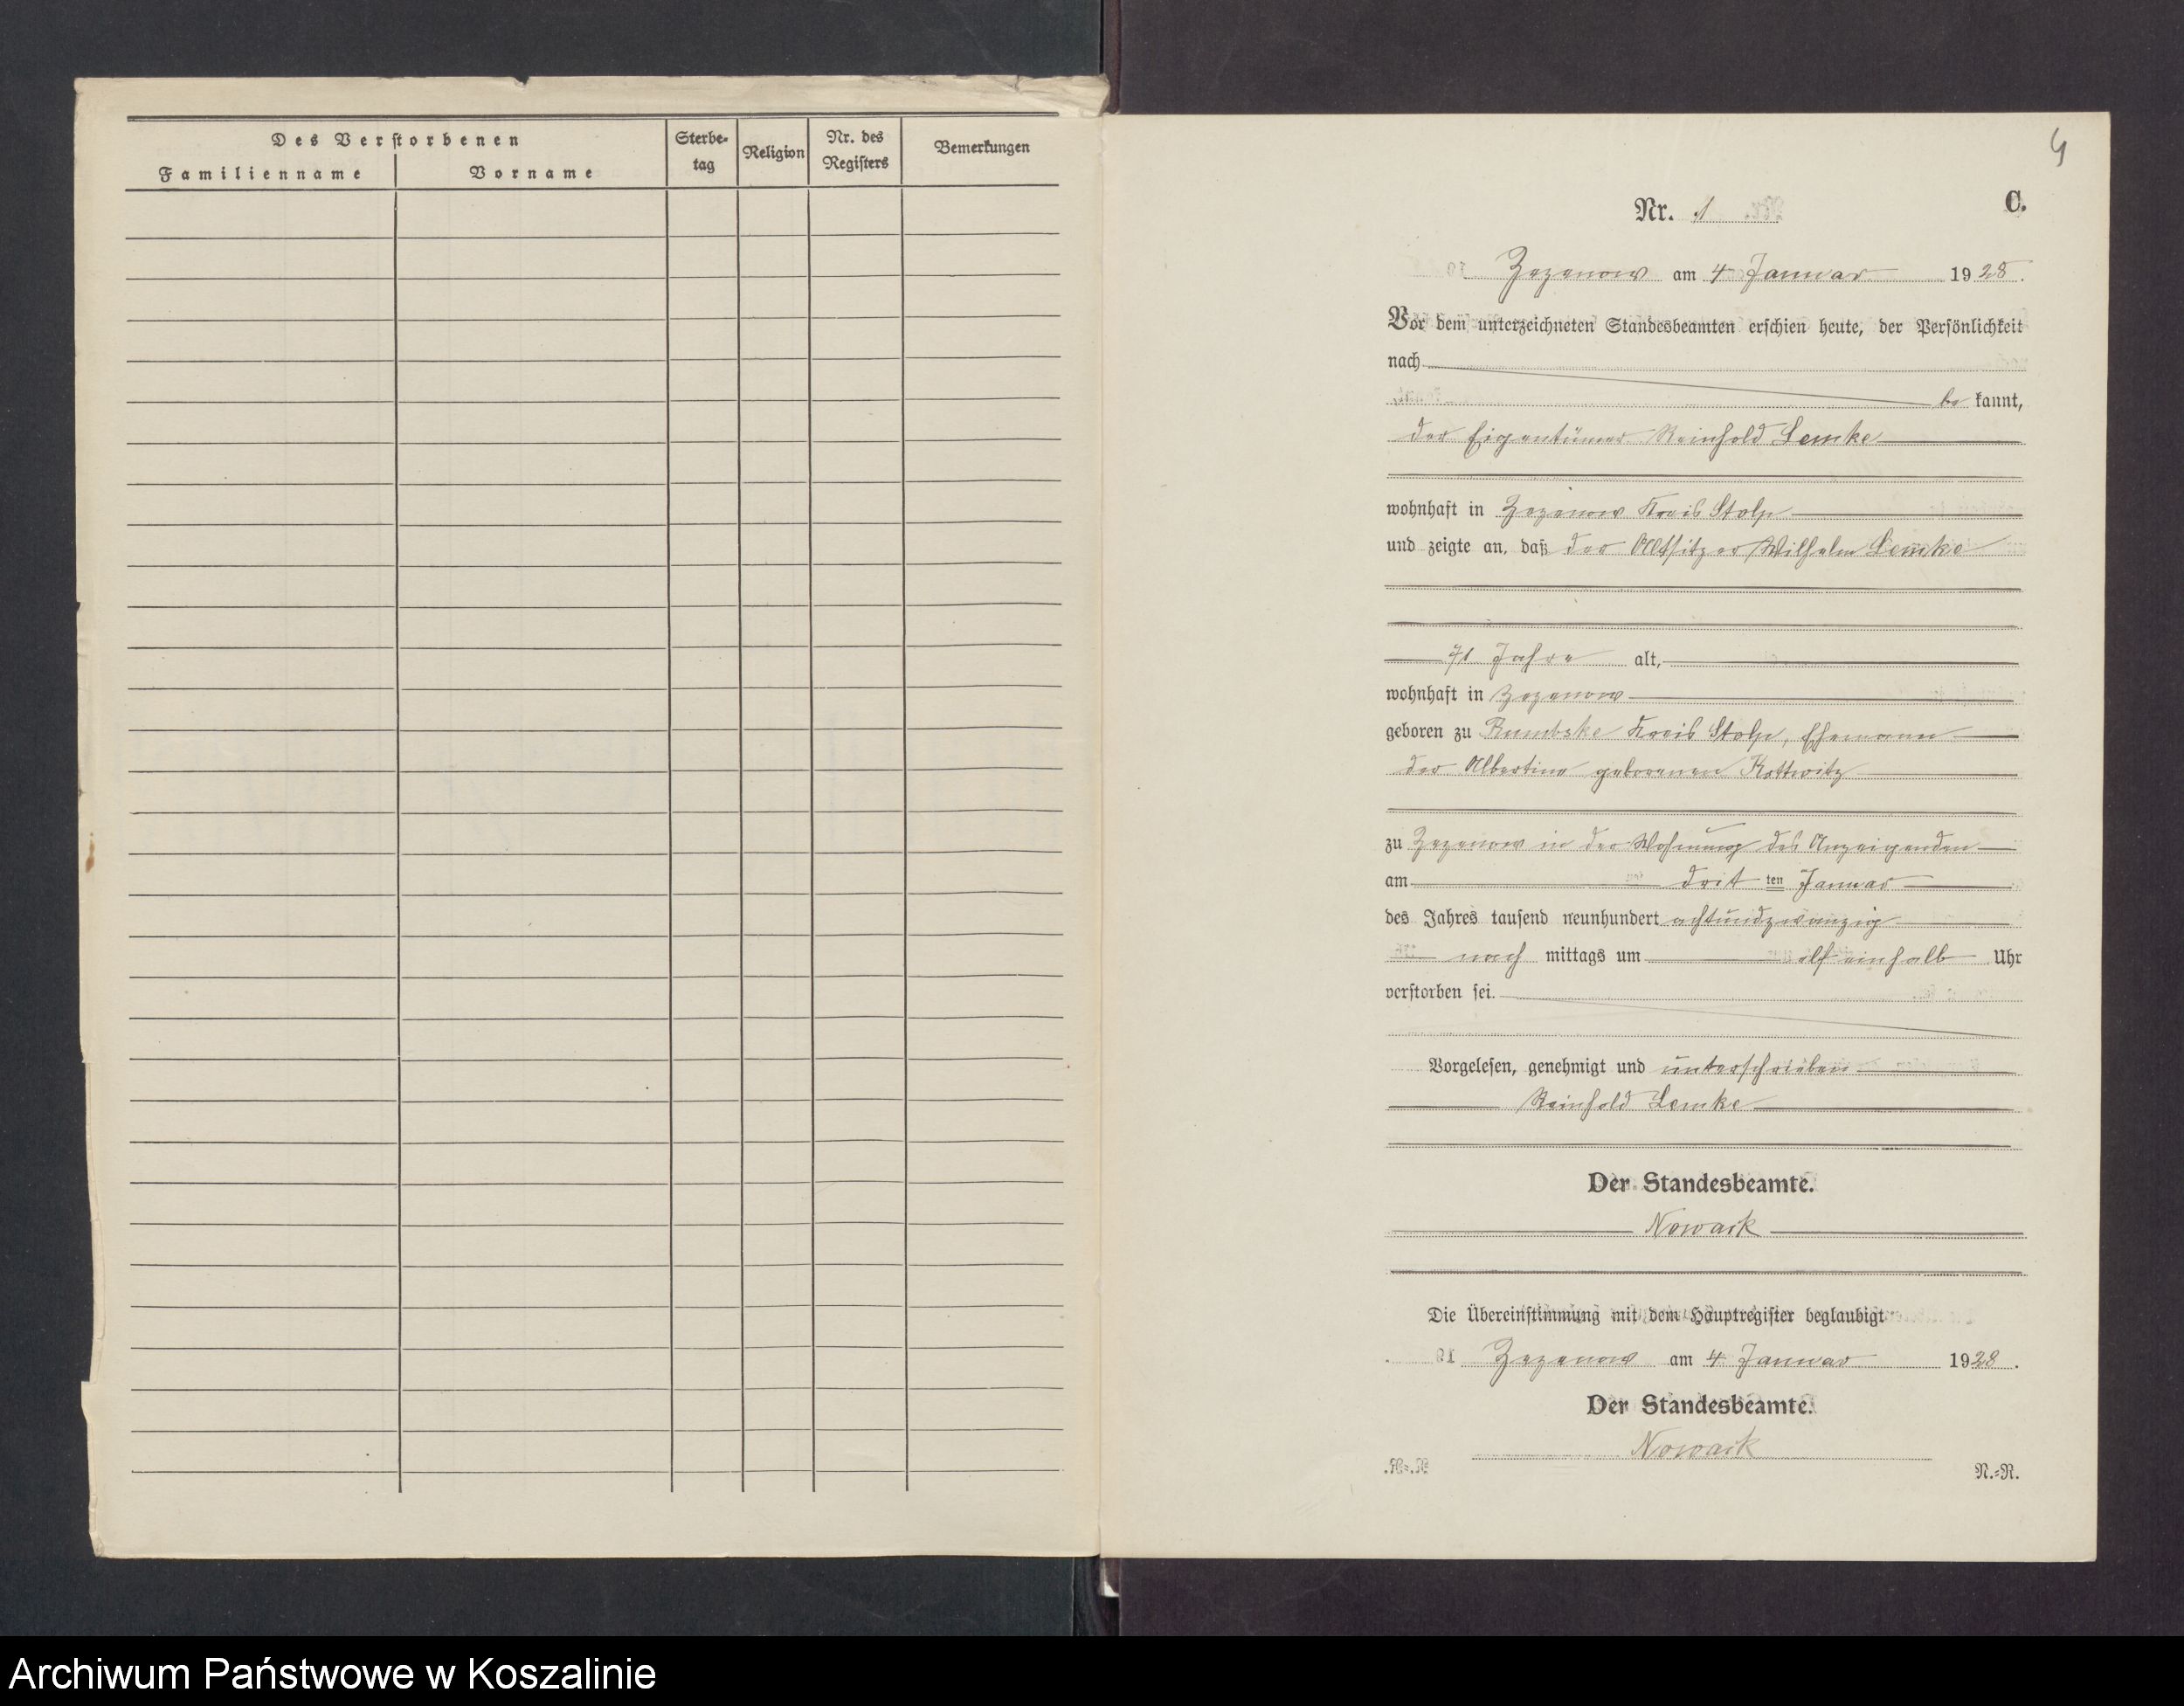 Des Verstorbenen
Familienname
Vorname
Sterbe-
tag
Religion
Nr. des
Registers
Bemerkungen
4
C.
Nr. 1
Zezenow am 4 Januar 1928.
Vor dem unterzeichneten Standesbeamten erschien heute, der Persönlichkeit
nach
be kannt,
der Eigentümer Reinhold Lemke
wohnhaft in Zezenow Kreis Stolp
und zeigte an, daß der Altsitzer Wilhelm Lemke
71 Jahre alt,
wohnhaft in Zezenow
geboren zu Rumbske Kreis Stolp, Ehemann
der Albertine geborenen Kottwitz
zu Zezenow in der Wohnung des Anzeigenden
am drit ten Januar
des Jahres tausend neunhundert achtundzwanzig
nach mittags um elf einhalb Uhr
verstorben sei.
Vorgelesen, genehmigt und unterschrieben
Reinhold Lemke
Der Standesbeamte.
Nowack
Die Übereinstimmung mit dem Hauptregister beglaubigt
Zezenow am 4 Januar 1928.
Der Standesbeamte.
Nowack
N.=R.
Archiwum Państwowe w Koszalinie